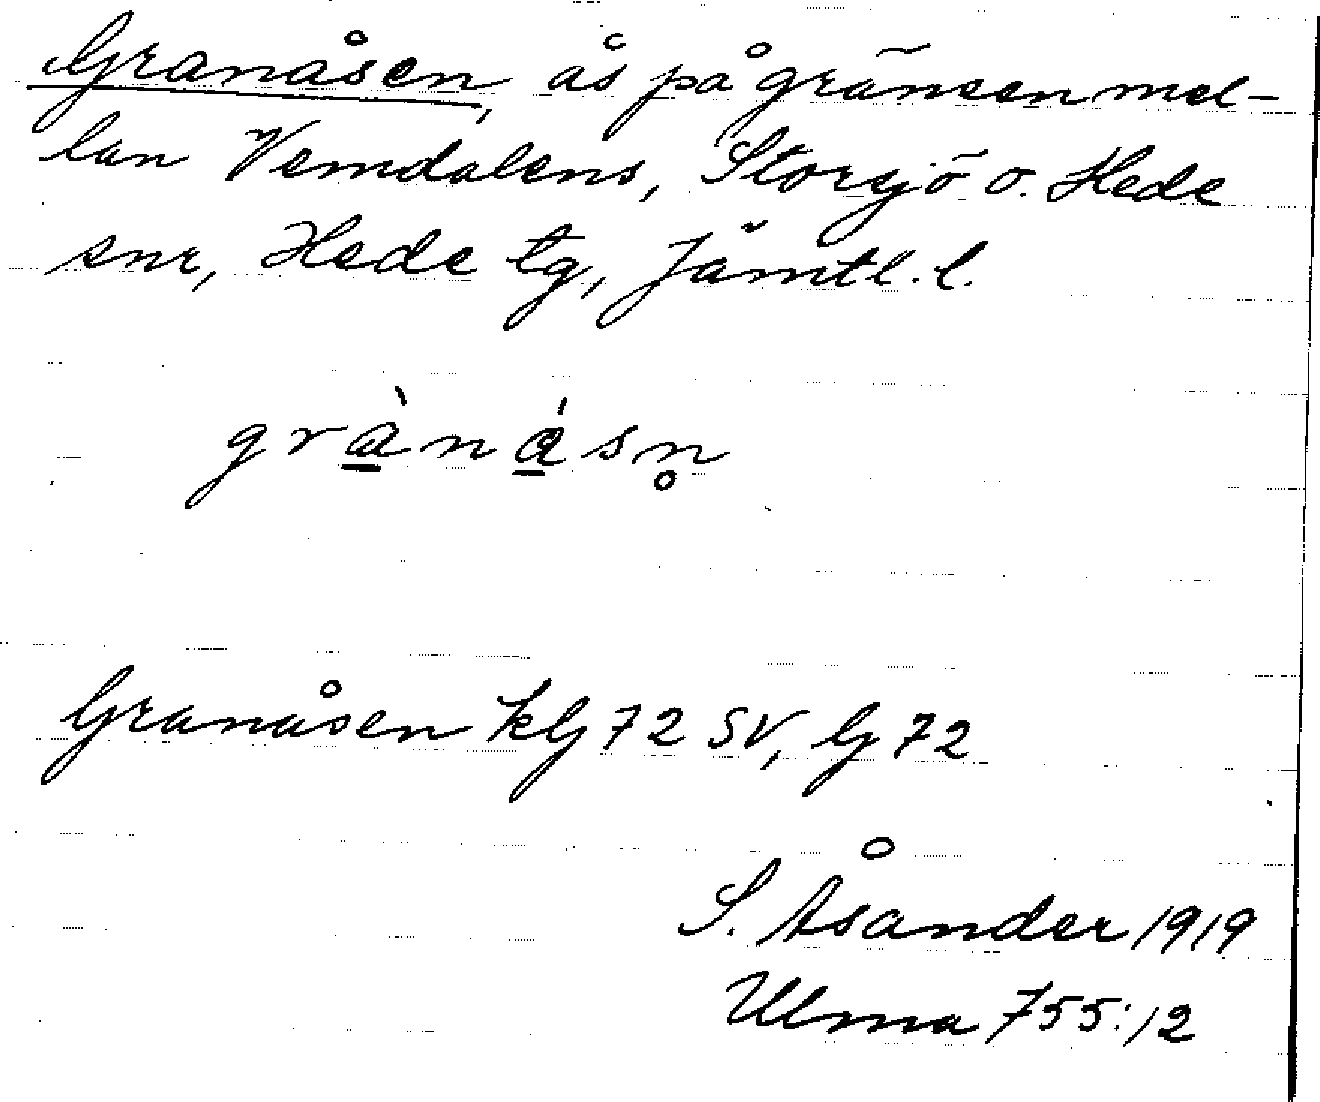 Granåsen, ås på gränsen mel-
lan Vemdalens, Storsjö o. Hede
snr, Hede tg, Jämtl. l.
grà̲ná̲sn̥
Granåsen kbg 72 SV, bg 72
S. Åsander 1919
Ulma 755:12